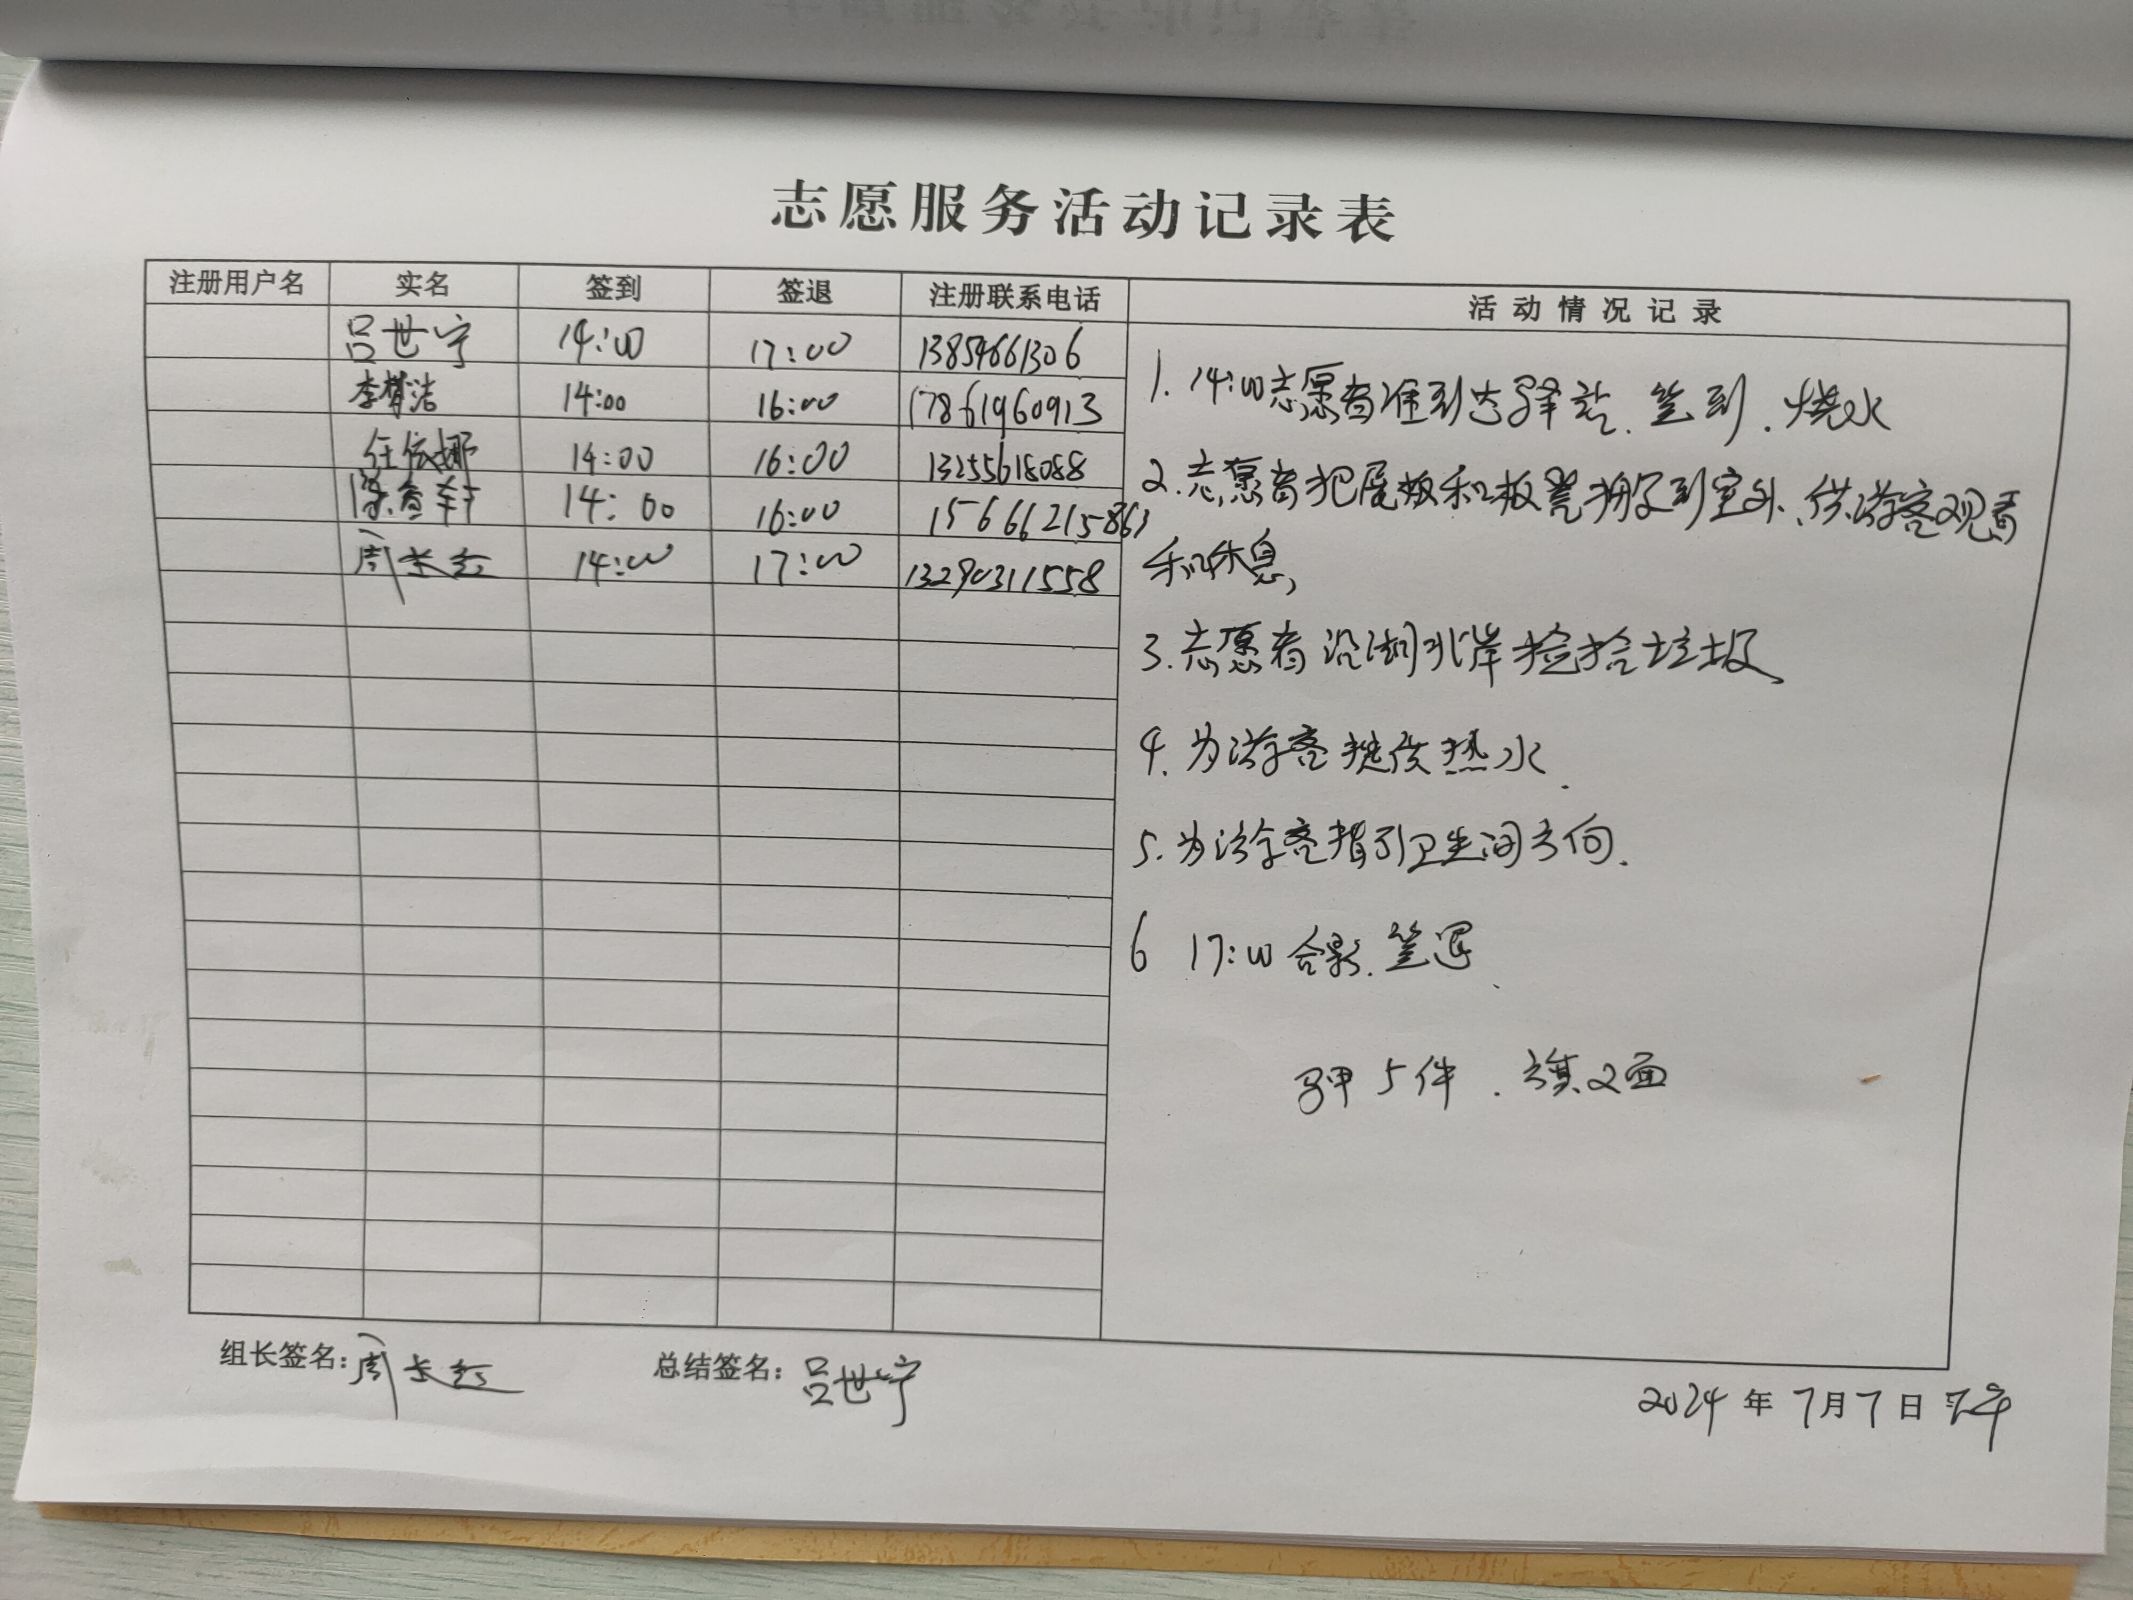 志愿服务活动记录表
注册用户名 实名 签到 签退 注册联系电话 活动情况记录
吕世宁 14:00 17:00 13854661306
李 洁 14:00 16:00 17861960913
任依娜 14:00 16:00 13255618088
14:00 16:00 15666215863
周长红 14:00 17:00 13290311558
1. 14:00志愿者准到达驿站、签到、烧水
2. 志愿者把展板和板凳搬到室外、供游客观看
和休息,
3. 志愿者沿湖北岸捡拾垃圾、
4. 为游客提供热水.
5. 为游客指引卫生间方向.
6 17:00合影、签退、
马甲5件.旗2面
组长签名:周长红 总结签名:吕世宁
2024年7月7日下午